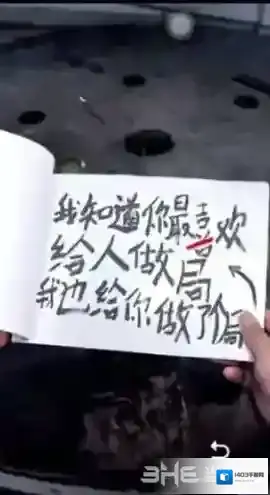 我知道你最喜欢
给人做局
我也给你做了局
3HE
1403手游网